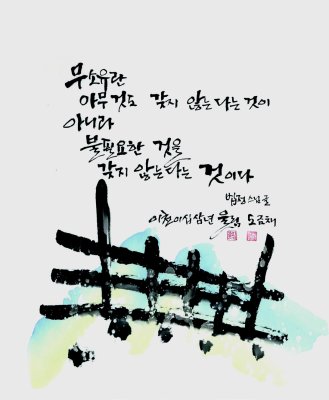 무소유란
아무것도 갖지 않는다는 것이
아니라
불필요한 것을
갖지 않는다는 것이다
법정스님 글
이천이십삼년